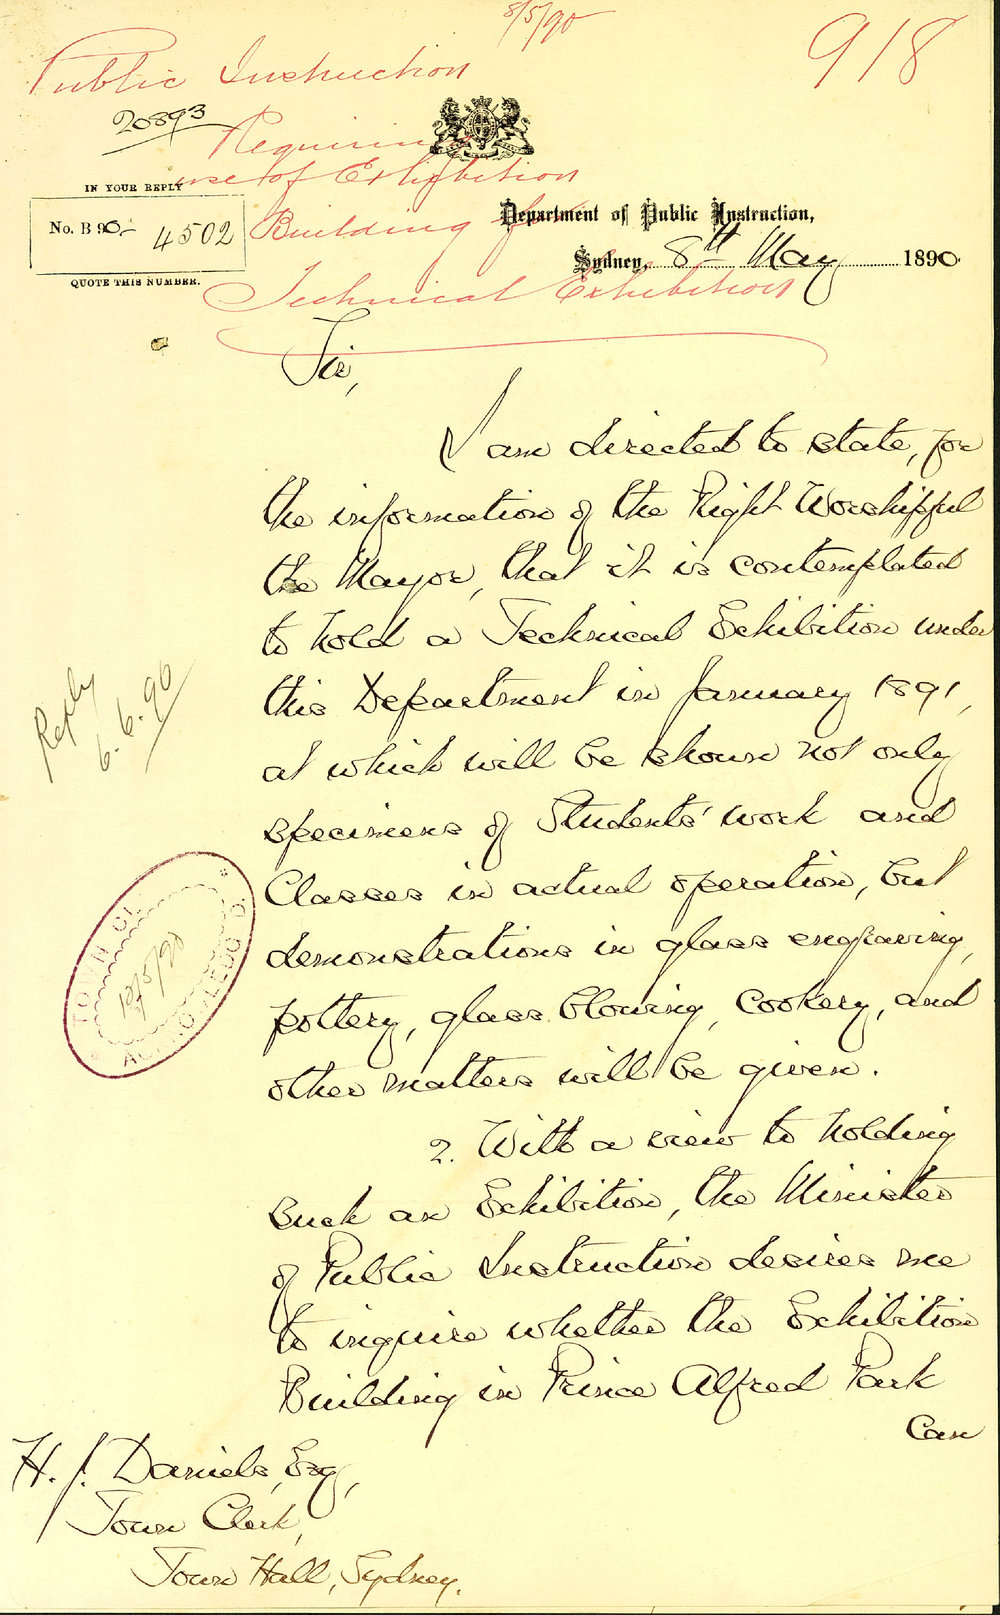 8/5/90
918
Public Instruction
20893
Requiring
use of Exhibition
Building for
Technical Exhibition
IN YOUR REPLY
No. B 90- 4502
QUOTE THIS NUMBER.
Department of Public Instruction,
Sydney, 8th May 1890.
Sir,
I am directed to state, for
the information of the Right Worshipful
the Mayor, that it is contemplated
to hold a Technical Exhibition under
this Department in January 1891,
at which will be shown not only
specimens of Students' work and
Classes in actual operation, but
demonstrations in glass engraving,
pottery, glass blowing, Cookery, and
other matters will be given.
2. With a view to holding
such an Exhibition, the Minister
of Public Instruction desires me
to inquire whether the Exhibition
Building in Prince Alfred Park
Can
Reply
6.6.90
TOWN CL
12/5/90
H. J. Daniels, Esq,
Town Clerk,
Town Hall, Sydney.